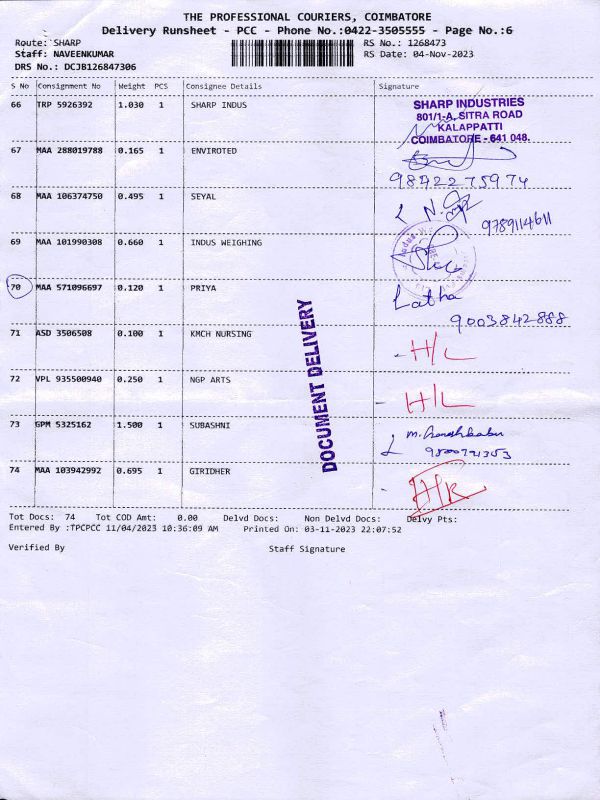 THE PROFESSIONAL COURIERS, COIMBATORE
Delivery Runsheet - PCC - Phone No.:0422-3505555 - Page No.:6
Route: SHARP RS No.: 1268473
Staff: NAVEENKUMAR RS Date: 04-Nov-2023
DRS No.: DCJB126847306
S No Consignment No Weight PCS Consignee Details Signature
66 TRP 5926392 1.030 1 SHARP INDUS
SHARP INDUSTRIES
801/1-A, SITRA ROAD
KALAPPATTI
COIMBATORE - 641 048.
67 MAA 288019788 0.165 1 ENVIROTED
9842275974
68 MAA 106374750 0.495 1 SEYAL
9789114611
69 MAA 101990308 0.660 1 INDUS WEIGHING
70 MAA 571096697 0.120 1 PRIYA Latha
9003842888
71 ASD 3506508 0.100 1 KMCH NURSING - H/L
72 VPL 935500940 0.250 1 NGP ARTS - H/L
73 GPM 5325162 1.500 1 SUBASHNI
74 MAA 103942992 0.695 1 GIRIDHER - H/R
DOCUMENT DELIVERY
Tot Docs: 74 Tot COD Amt: 0.00 Delvd Docs: Non Delvd Docs: Delvy Pts:
Entered By :TPCPCC 11/04/2023 10:36:09 AM Printed On: 03-11-2023 22:07:52
Verified By Staff Signature